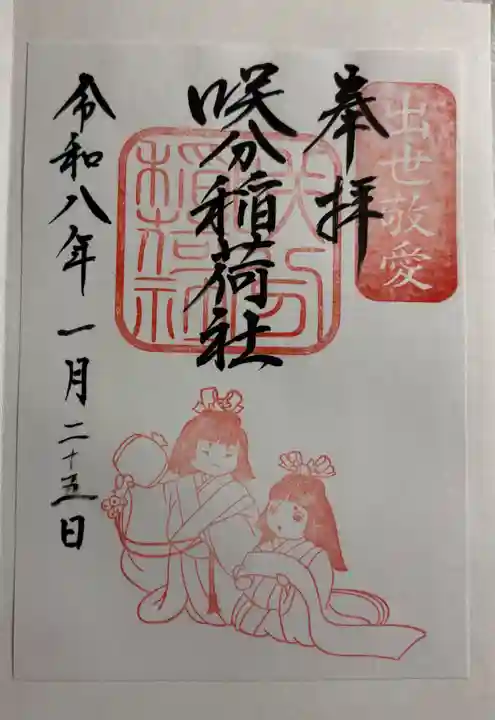 出世敬愛
奉拝
咲分稲荷社
咲分
稲荷社
令和八年一月二十五日